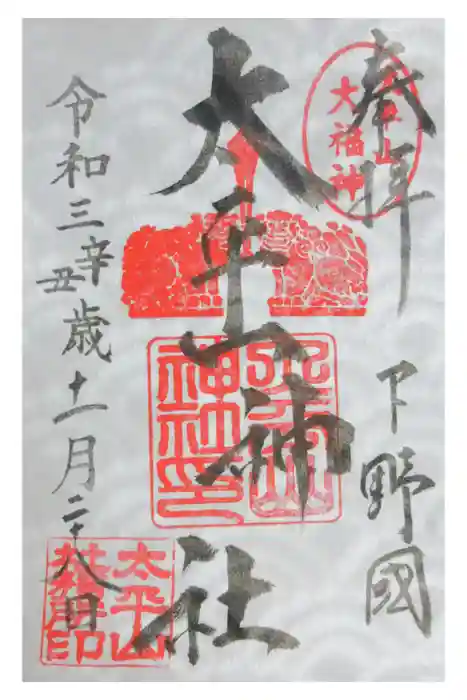 奉拝
下野國
太平山
大福神
太平山神社
太平山
神社印
令和三辛丑歳十一月二十八日
太平山